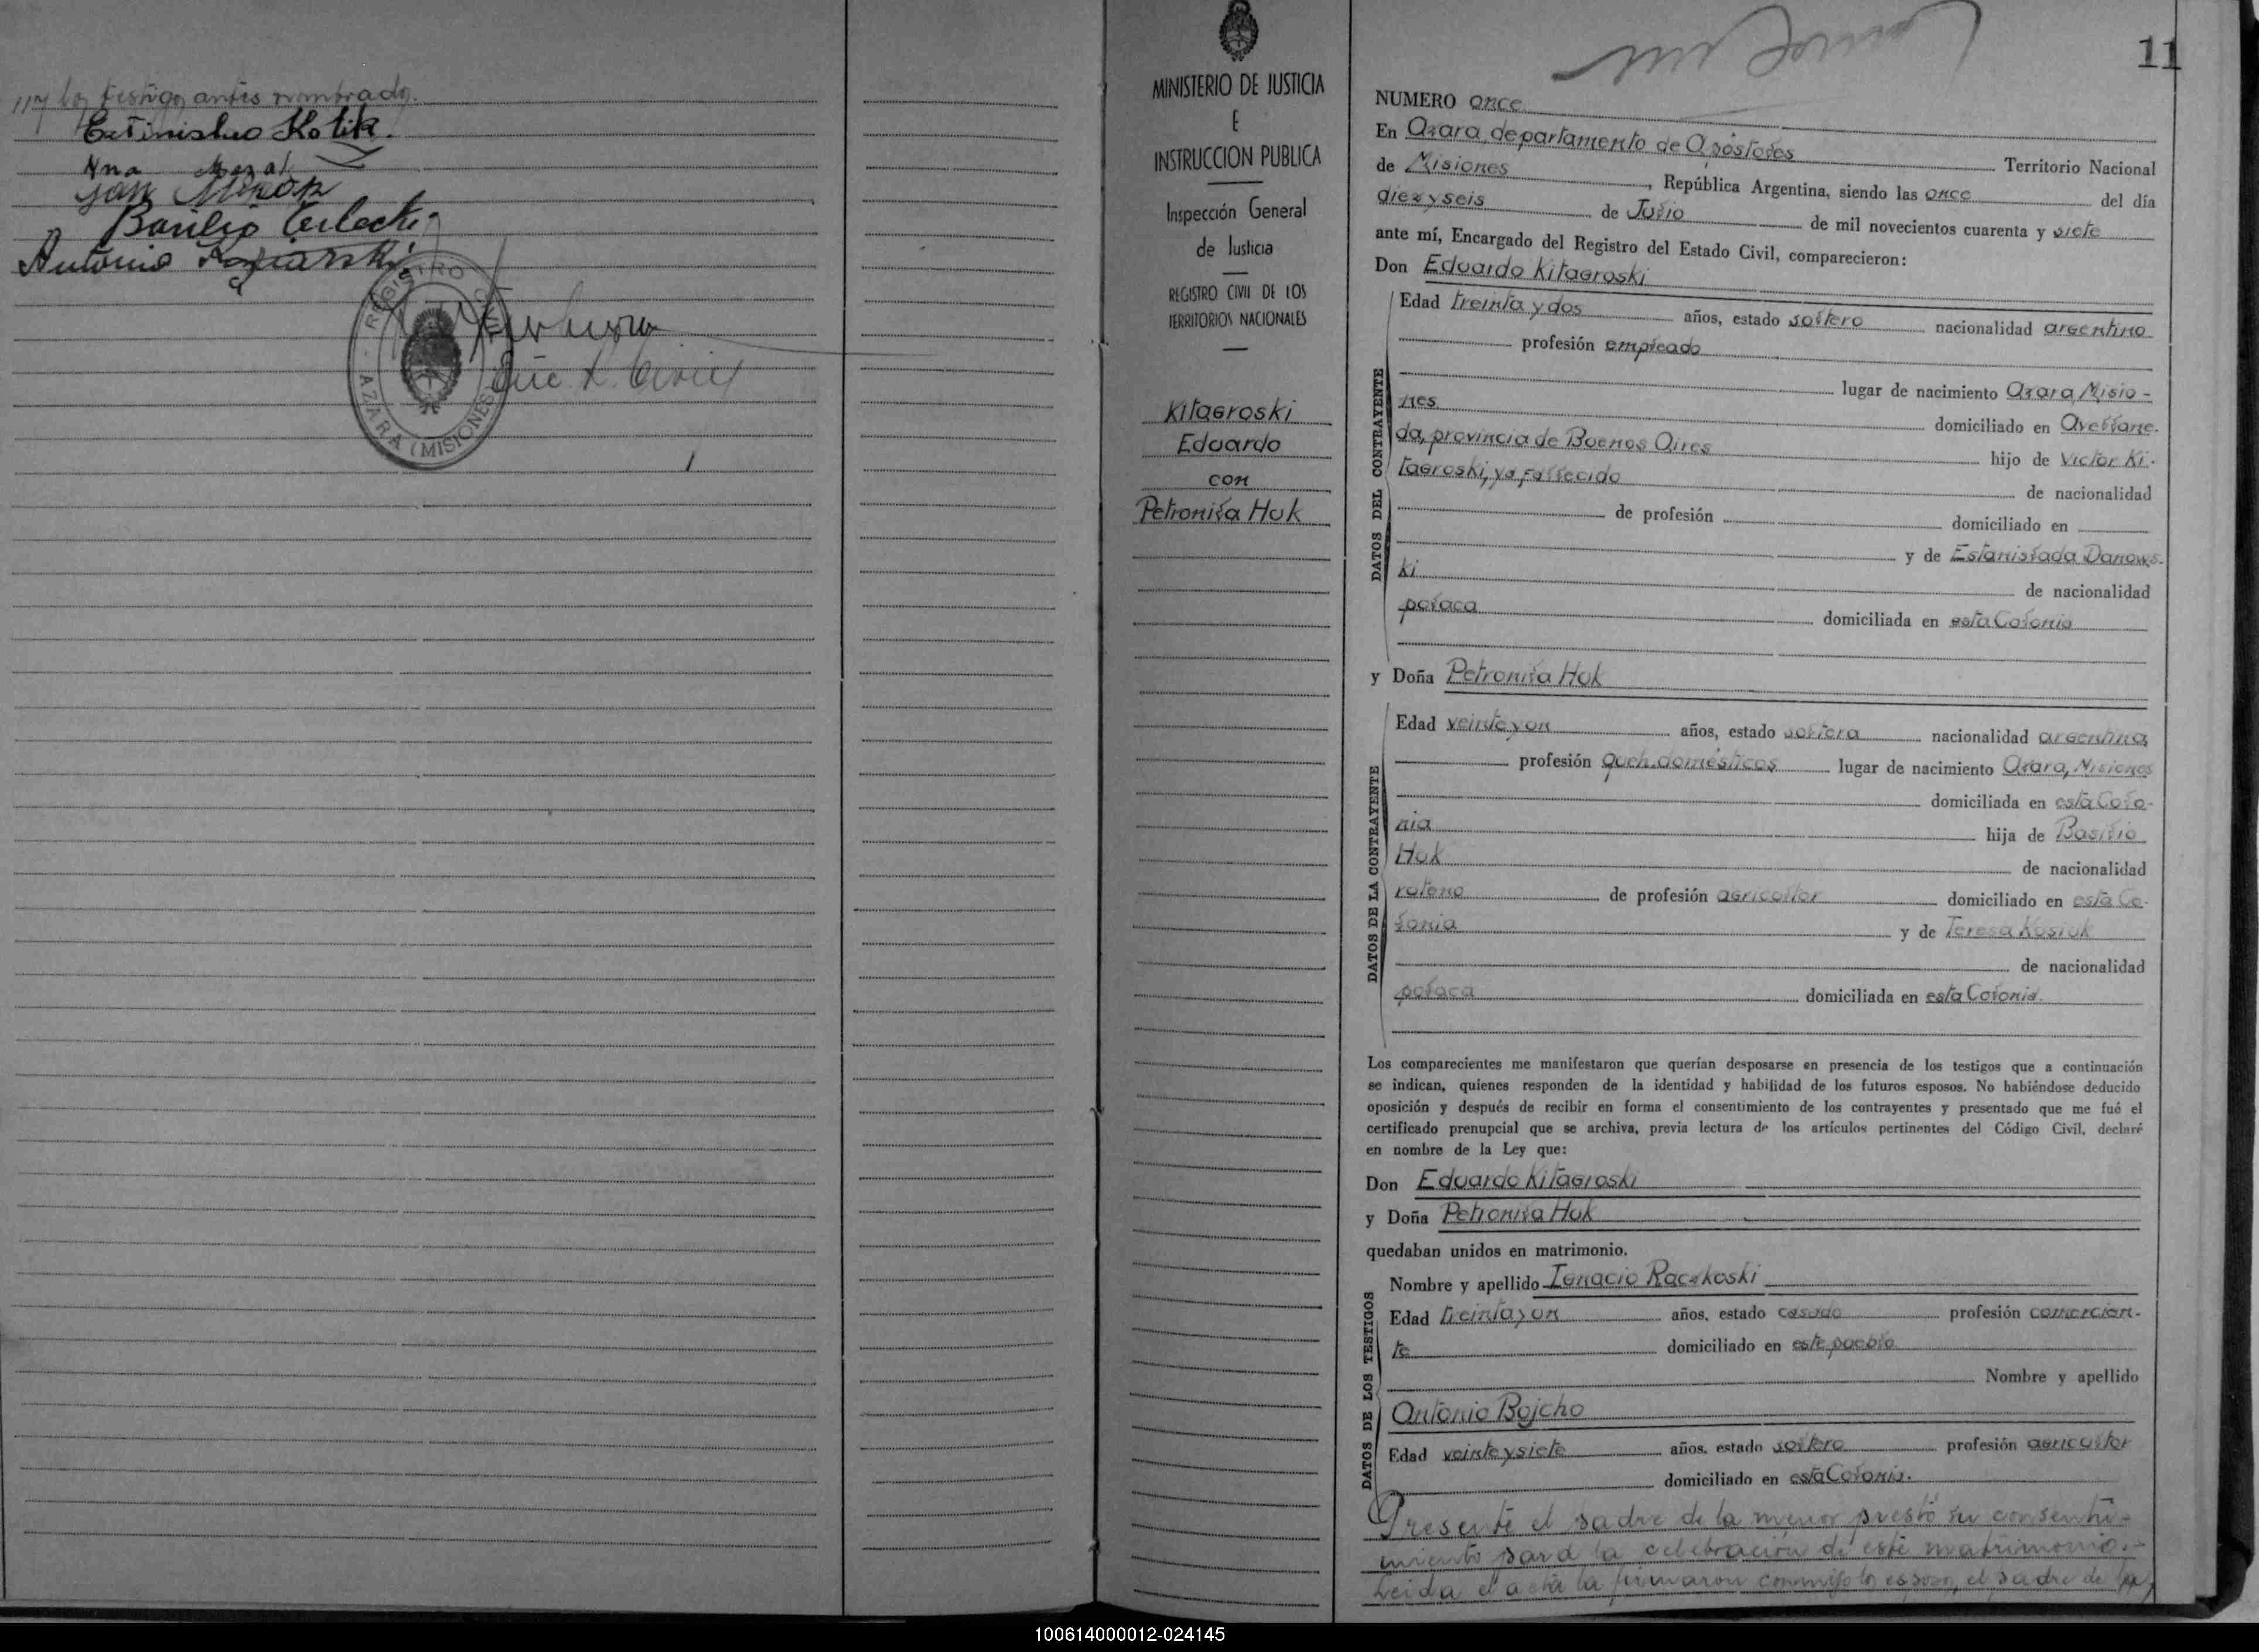 //y los testigos antes nombrados.
Estinislao Kotik.
Ana Mazal
Jan
Basilio
Antonio
REGISTRO CIVIL
AZARA (MISIONES)
Enc. R. Civil
MINISTERIO DE JUSTICIA
E
INSTRUCCION PUBLICA
Inspección General
de Justicia
REGISTRO CIVIL DE LOS
TERRITORIOS NACIONALES
Kitagroski
Eduardo
con
Petronila Huk
11
NUMERO once
En Azara, departamento de Apóstoles
Territorio Nacional
de Misiones, República Argentina, siendo las once del día
diez y seis de Julio de mil novecientos cuarenta y siete
ante mí, Encargado del Registro del Estado Civil, comparecieron:
Don Eduardo Kitagroski
DATOS DEL CONTRAYENTE
Edad treinta y dos años, estado soltero nacionalidad argentino
profesión empleado
lugar de nacimiento Azara, Misio-
nes domiciliado en Avellane-
da, provincia de Buenos Aires hijo de Victor Ki-
tagroski, ya fallecido de nacionalidad
de profesión domiciliado en
y de Estanislada Danows-
ki de nacionalidad
polaca domiciliada en esta Colonia
y Doña Petronila Huk
DATOS DE LA CONTRAYENTE
Edad veinte y un años, estado soltera nacionalidad argentina
profesión queh. domésticos lugar de nacimiento Azara, Misiones
domiciliada en esta Colo-
nia hija de Basilio
Huk de nacionalidad
ruteno de profesión agricultor domiciliado en esta Co-
lonia y de Teresa Kosiuk
de nacionalidad
polaca domiciliada en esta Colonia.
Los comparecientes me manifestaron que querían desposarse en presencia de los testigos que a continuación
se indican, quienes responden de la identidad y habilidad de los futuros esposos. No habiéndose deducido
oposición y después de recibir en forma el consentimiento de los contrayentes y presentado que me fué el
certificado prenupcial que se archiva, previa lectura de los artículos pertinentes del Código Civil, declaré
en nombre de la Ley que:
Don Eduardo Kitagroski
y Doña Petronila Huk
quedaban unidos en matrimonio.
DATOS DE LOS TESTIGOS
Nombre y apellido Ignacio Raczkoski
Edad treinta y un años, estado casado profesión comercian-
te domiciliado en este pueblo
Nombre y apellido
Antonio Bojcho
Edad veinte y siete años, estado soltero profesión agricultor
domiciliado en esta Colonia.
Presente el padre de la menor prestó su consenti-
miento para la celebración de este matrimonio.-
Leida el acta la firmaron conmigo los esposos, el padre de la
100614000012-024145